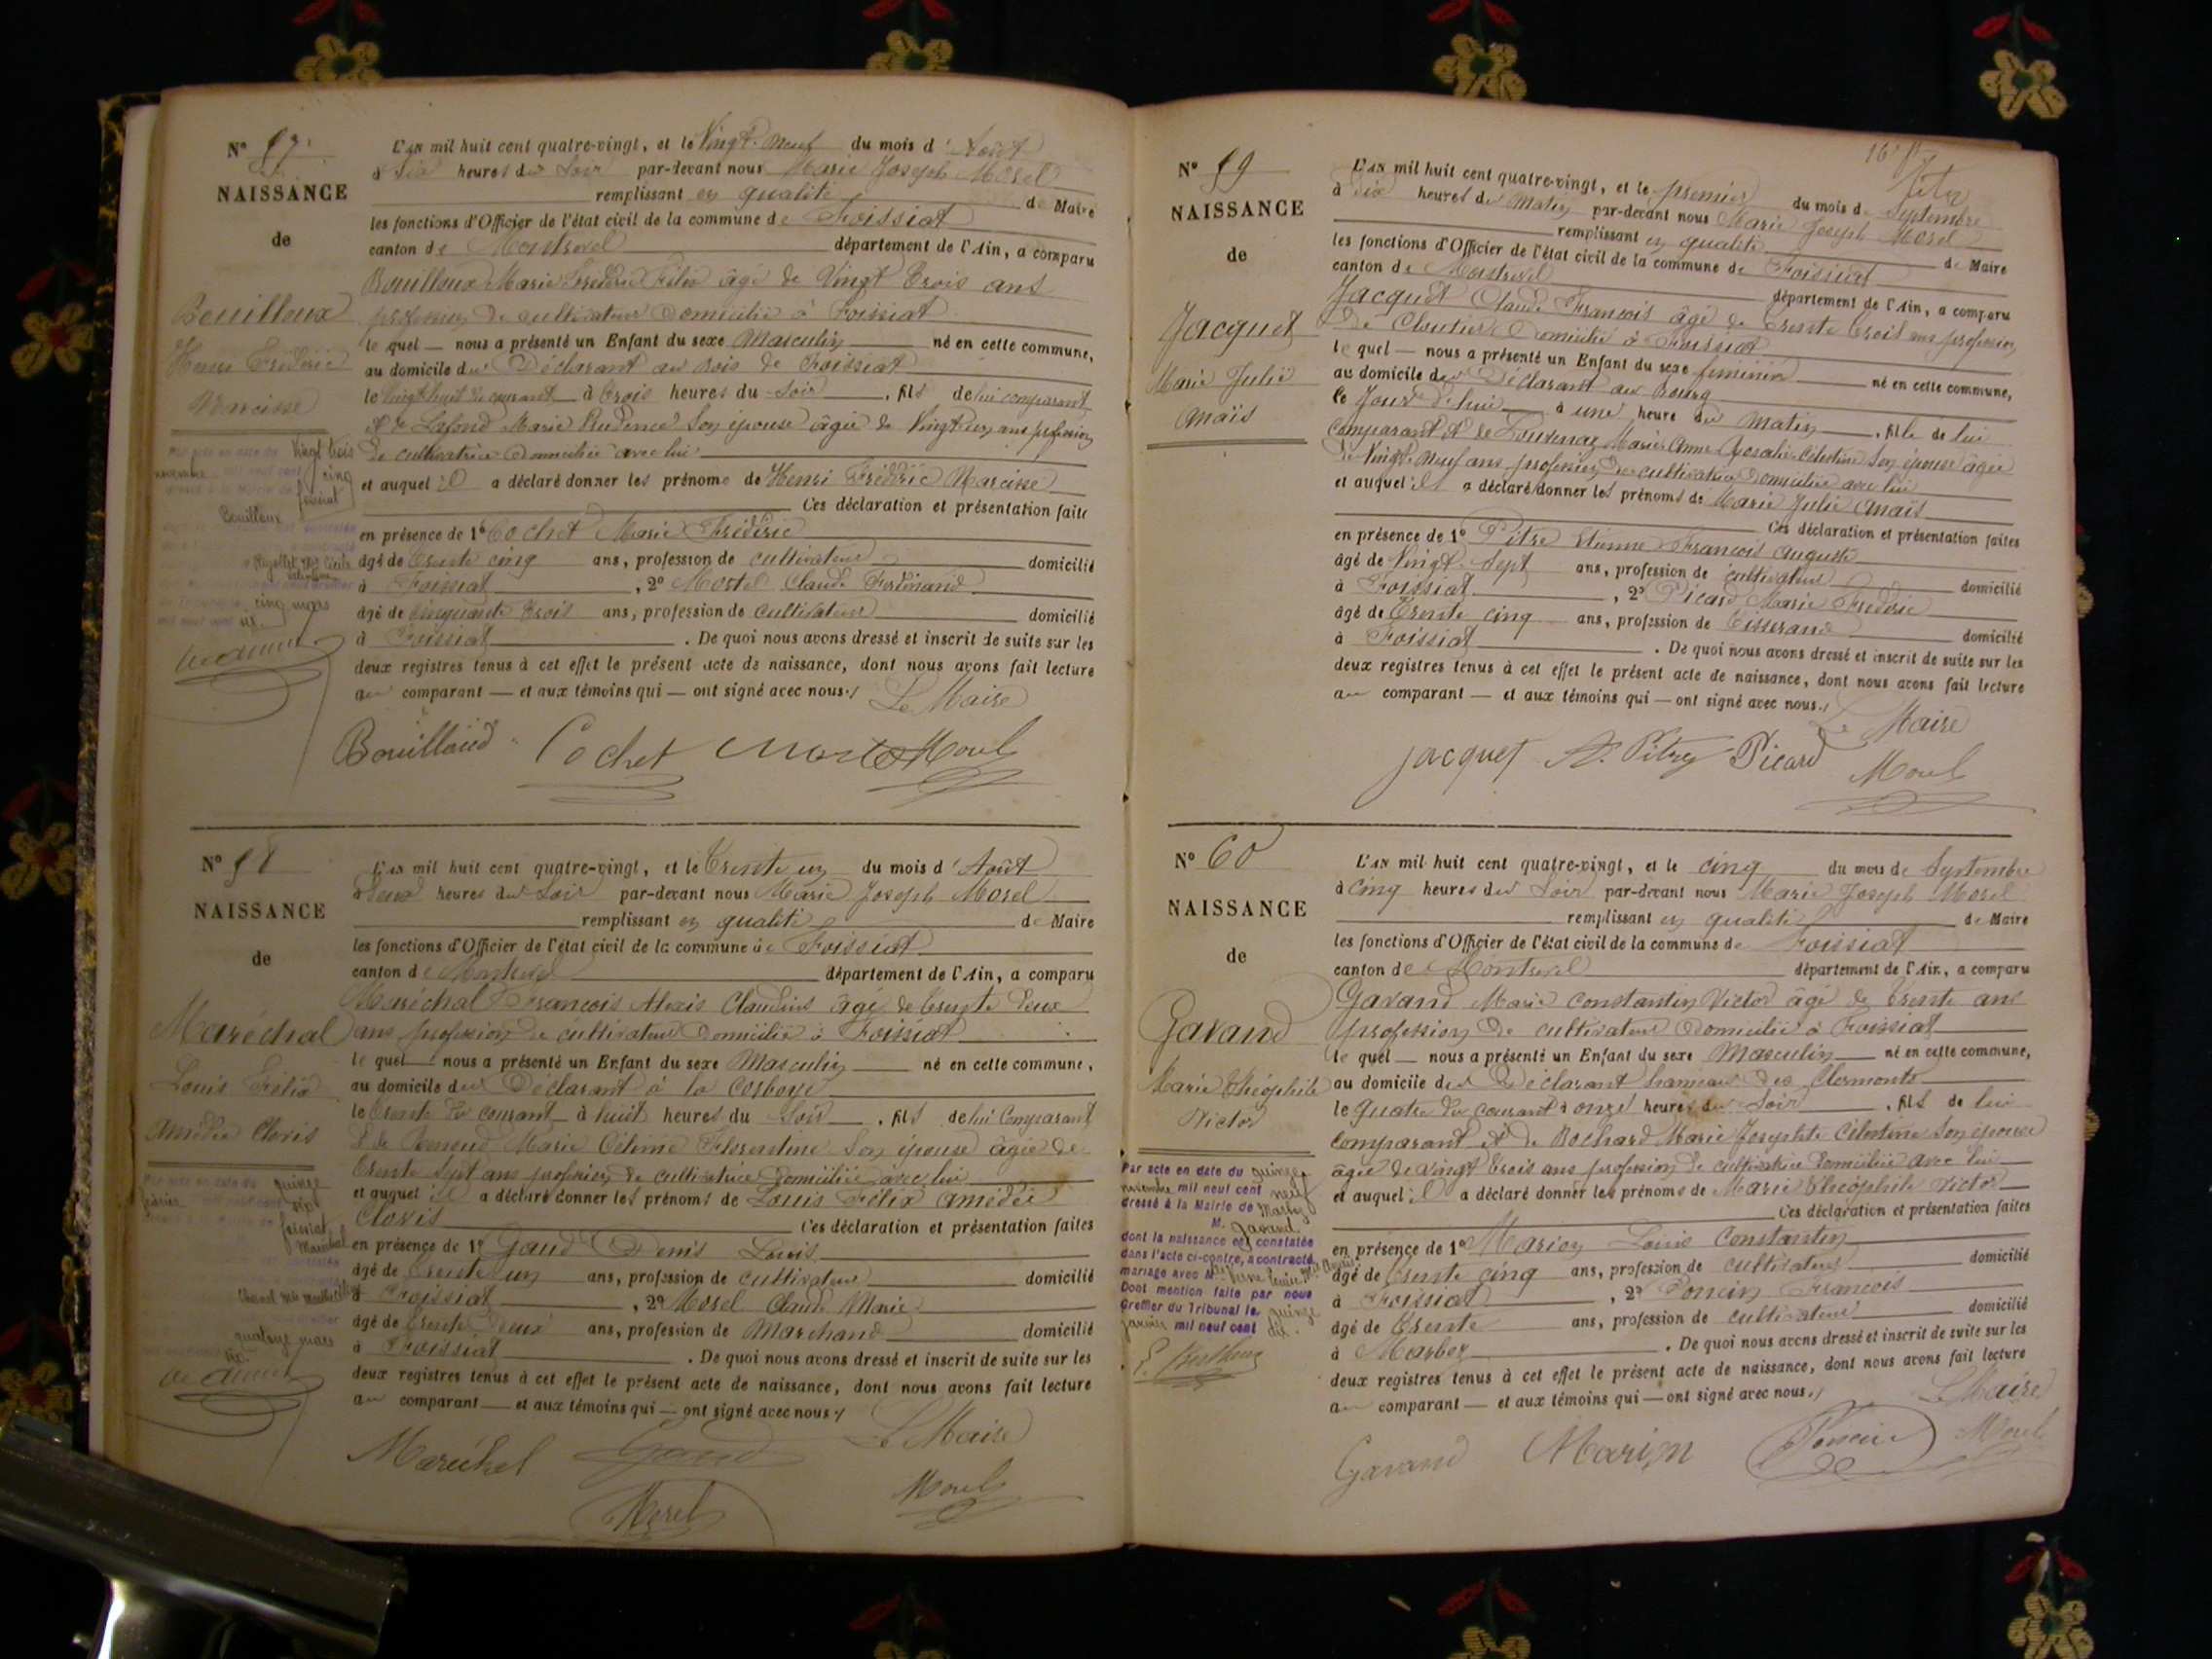 N° 57
NAISSANCE
de
Bouilloux
Henri Frédéric
Narcisse
L'AN mil huit cent quatre-vingt, et le Vingt-neuf du mois d'Août
à Six heures du Soir par-devant nous Marie Joseph Morel
remplissant en qualité de Maire
les fonctions d'Officier de l'état civil de la commune de Foissiat
canton de Montrevel département de l'Ain, a comparu
Bouilloux Marie Frédéric Félix âgé de Vingt trois ans
profession de cultivateur domicilié à Foissiat
le quel — nous a présenté un Enfant du sexe Masculin né en cette commune,
au domicile du Déclarant au Bois de Foissiat
le Vingt huit du courant à trois heures du Soir, fils de lui comparant
et de Lafond Marie Prudence Son épouse âgée de Vingt un ans profession
de cultivatrice domiciliée avec lui
et auquel il a déclaré donner les prénoms de Henri Frédéric Narcisse
Ces déclaration et présentation faite
en présence de 1° Cochet Marie Frédéric
âgé de trente cinq ans, profession de cultivateur domicilié
à Foissiat, 2° Morel Claude Ferdinand
âgé de cinquante trois ans, profession de cultivateur domicilié
à Foissiat. De quoi nous avons dressé et inscrit de suite sur les
deux registres tenus à cet effet le présent acte de naissance, dont nous avons fait lecture
au comparant — et aux témoins qui — ont signé avec nous./ Le Maire
Vingt trois
novembre
cinq
foissiat
Bouilloux
cinq mars
six
Bouilloud Cochet Morel
N° 58
NAISSANCE
de
Maréchal
Louis Félix
Amédée Clovis
L'AN mil huit cent quatre-vingt, et le trente un du mois d'Août
à deux heures du Soir par-devant nous Marie Joseph Morel
remplissant en qualité de Maire
les fonctions d'Officier de l'état civil de la commune de Foissiat
canton de Montrevel département de l'Ain, a comparu
Maréchal François Alexis Claudius âgé de trente deux
ans profession de cultivateur domicilié à Foissiat
le quel — nous a présenté un Enfant du sexe Masculin né en cette commune,
au domicile du Déclarant à la
le trente du courant à huit heures du Soir, fils de lui comparant
et de Renoud Marie Célime Florentine Son épouse âgée de
trente Sept ans profession de cultivatrice domiciliée avec lui
et auquel il a déclaré donner les prénoms de Louis Félix Amédée
Clovis Ces déclaration et présentation faites
en présence de 1° Gaud Denis Louis
âgé de trente un ans, profession de cultivateur domicilié
à Foissiat, 2° Morel Claude Marie
âgé de trente deux ans, profession de Marchand domicilié
à Foissiat. De quoi nous avons dressé et inscrit de suite sur les
deux registres tenus à cet effet le présent acte de naissance, dont nous avons fait lecture
au comparant — et aux témoins qui — ont signé avec nous./ Le Maire
quinze
février
sept
foissiat
Maréchal
quatorze mars
Maréchal Gaud
Morel Morel
N° 59
NAISSANCE
de
Jacquet
Marie Julie
Anaïs
16
L'AN mil huit cent quatre-vingt, et le premier du mois de Septembre
à dix heures du Matin par-devant nous Marie Joseph Morel
remplissant en qualité de Maire
les fonctions d'Officier de l'état civil de la commune de Foissiat
canton de Montrevel département de l'Ain, a comparu
Jacquet Claude François âgé de trente trois ans profession
de Cloutier domicilié à Foissiat
le quel — nous a présenté un Enfant du sexe féminin né en cette commune,
au domicile du Déclarant au Bourg
le Jour d'hui à une heure du Matin, fille de lui
comparant et de Marie Anne Rosalie Célestine Son épouse âgée
de Vingt-neuf ans profession de cultivatrice domiciliée avec lui
et auquel il a déclaré donner les prénoms de Marie Julie Anaïs
Ces déclaration et présentation faites
en présence de 1° Pitre Etienne François Auguste
âgé de Vingt-Sept ans, profession de cultivateur domicilié
à Foissiat, 2° Picard Marie Frédéric
âgé de trente cinq ans, profession de tisserand domicilié
à Foissiat. De quoi nous avons dressé et inscrit de suite sur les
deux registres tenus à cet effet le présent acte de naissance, dont nous avons fait lecture
au comparant — et aux témoins qui — ont signé avec nous./
Le Maire
jacquet Picard Morel
N° 60
NAISSANCE
de
Gavand
Marie Théophile
Victor
L'AN mil huit cent quatre-vingt, et le cinq du mois de Septembre
à cinq heures du Soir par-devant nous Marie Joseph Morel
remplissant en qualité de Maire
les fonctions d'Officier de l'état civil de la commune de Foissiat
canton de Montrevel département de l'Ain, a comparu
Gavand Marie Constantin Victor âgé de trente ans
profession de cultivateur domicilié à Foissiat
le quel — nous a présenté un Enfant du sexe Masculin né en cette commune,
au domicile du Déclarant hameau des Clermonts
le quatre du courant à onze heures du Soir, fils de lui
comparant et de Bochard Marie Josephte Célestine Son épouse
âgée de vingt trois ans profession de cultivatrice domiciliée avec lui
et auquel il a déclaré donner les prénoms de Marie Théophile Victor
Ces déclaration et présentation faites
en présence de 1° Marion Louis Constantin
âgé de trente cinq ans, profession de cultivateur domicilié
à Foissiat, 2° Poncin François
âgé de trente ans, profession de cultivateur domicilié
à Marboz. De quoi nous avons dressé et inscrit de suite sur les
deux registres tenus à cet effet le présent acte de naissance, dont nous avons fait lecture
au comparant — et aux témoins qui — ont signé avec nous./
Le Maire
Par acte en date du quinze
novembre mil neuf cent neuf
dressé à la Mairie de Marboz
M. Gavand
dont la naissance est constatée
dans l'acte ci-contre, a contracté
mariage avec
Dont mention faite par nous
Greffier du Tribunal le quinze
janvier mil neuf cent dix.
Gavand Marion Poncin Morel